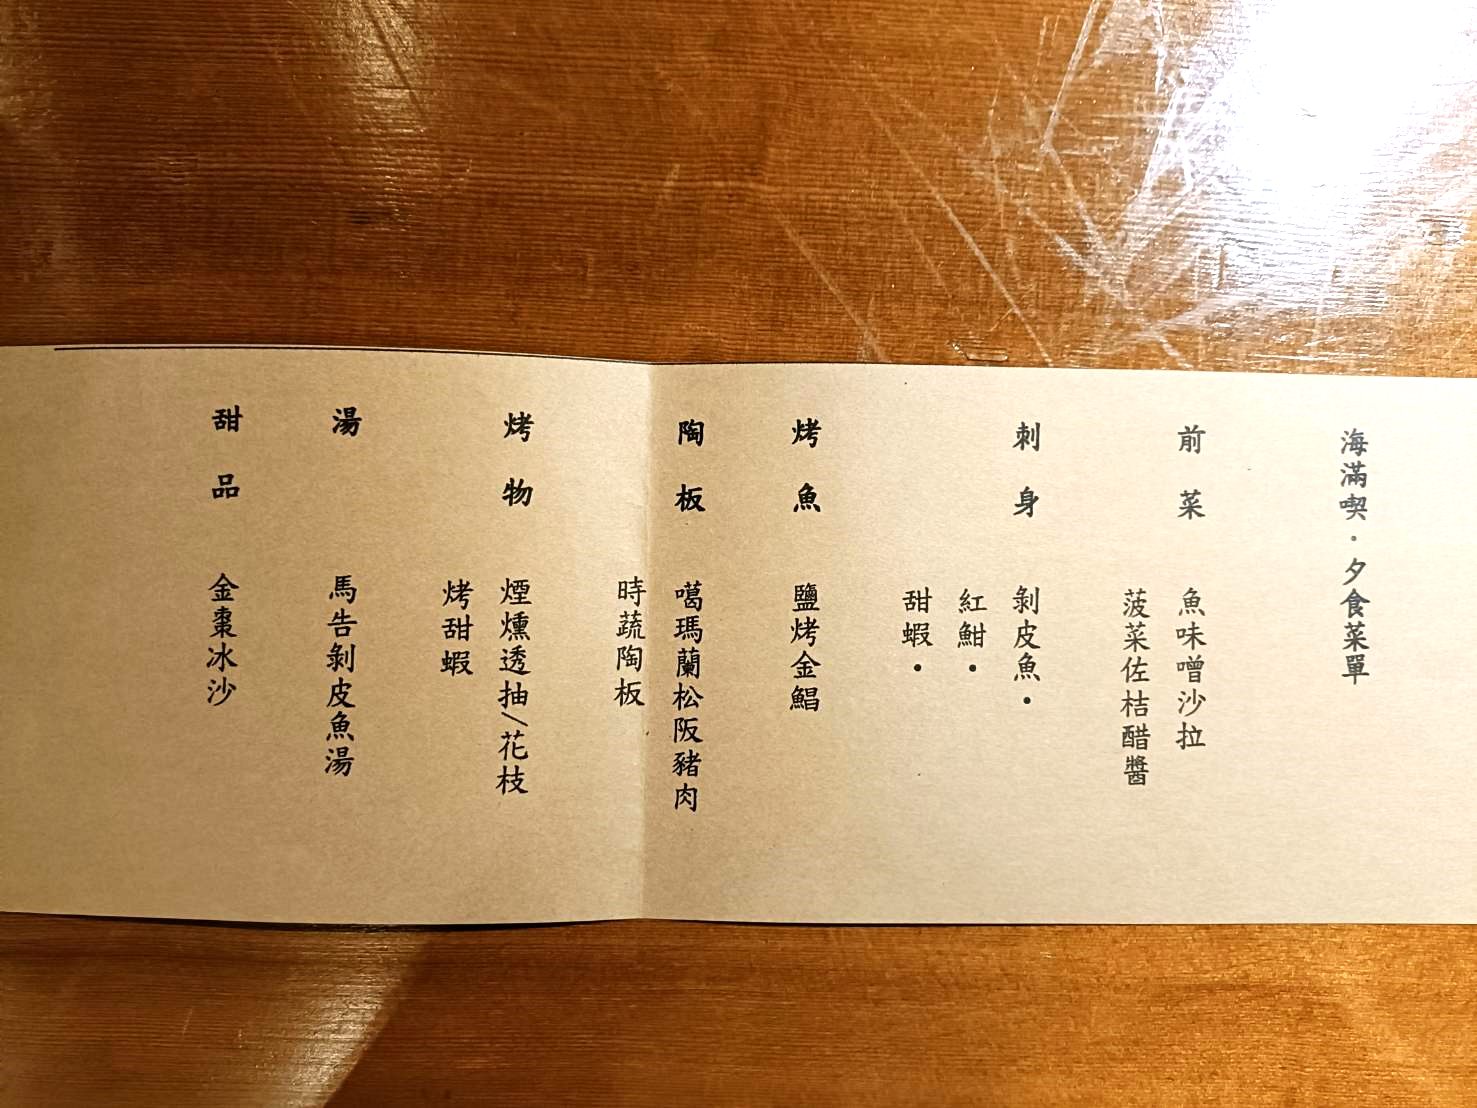 海滿喫・夕食菜單
前菜
魚味噌沙拉
菠菜佐桔醋醬
刺身
剝皮魚・
紅魽・
甜蝦・
烤魚
鹽烤金鯧
陶板
噶瑪蘭松阪豬肉
時蔬陶板
烤物
煙燻透抽/花枝
烤甜蝦
湯
馬告剝皮魚湯
甜品
金棗冰沙